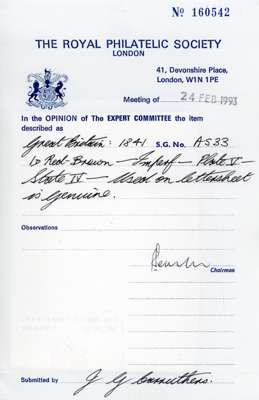 Nº 160542
THE ROYAL PHILATELIC SOCIETY
LONDON
41, Devonshire Place,
London, W1N 1PE
Meeting of 24 FEB 1993
In the OPINION of The EXPERT COMMITTEE the item
described as
Great Britain: 1841 S.G. No. AS33
1d Red-Brown - Imperf - Plate V -
State IV - Used on lettersheet
is genuine.
Observations
Chairman
Submitted by J G Carruthers.